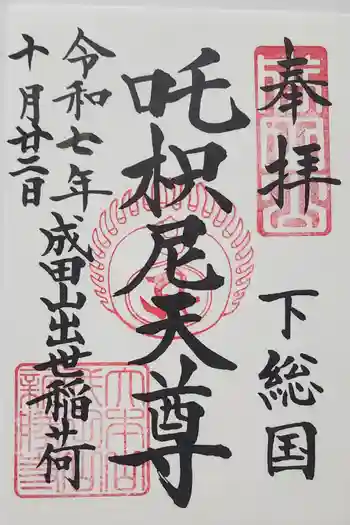 奉拝
下総国
吒枳尼天尊
令和七年
十月廿二日
成田山出世稲荷